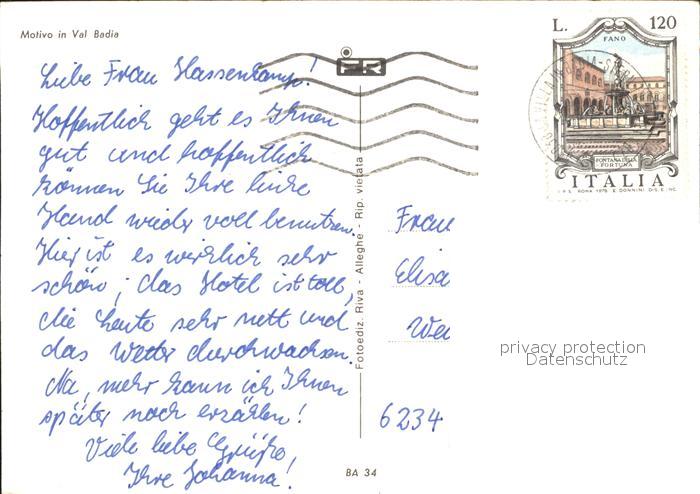 Motivo in Val Badia
Liebe Frau Hassenkamp!
Hoffentlich geht es Ihnen
gut und hoffentlich
können Sie Ihre linke
Hand wieder voll benutzen.
Hier ist es wirklich sehr
schön; das Hotel ist toll,
die Leute sehr nett und
das Wetter durchwachsen.
Na, mehr kann ich Ihnen
später noch erzählen!
Viele liebe Grüße,
Ihre Johanna!
Fotoediz. Riva - Alleghe - Rip. vietata
BA 34
FR
L. 120
FANO
FONTANA DELLA
FORTUNA
ITALIA
I.P.S. ROMA 1975 E. DONNINI DIS. E INC.
Frau
Elisa
We
6234
privacy protection
Datenschutz